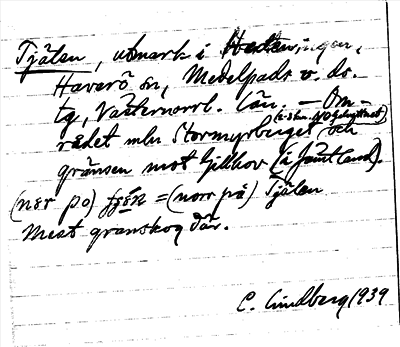 Tjälen, utmark i
Haverö sn, Medelpads v. ds.
tg, Västernorrl. län. – Om-
rådet mln Stormyrberget och
gränsen mot Gillhov (i Jämtland).
(nær po) = (norr på) Tjälen
Mest granskog där.
C. Lindberg 1939